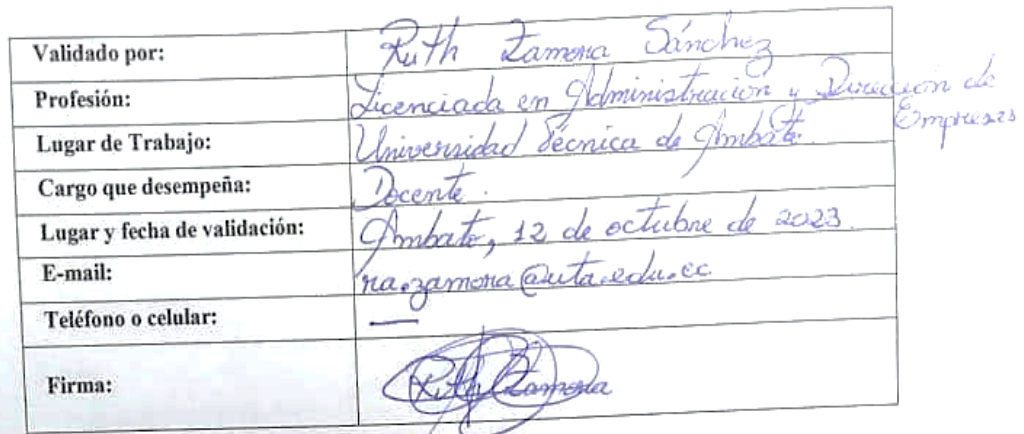 Validado por: Ruth Zamora Sánchez
Profesión: Licenciada en Administración y Dirección de Empresas
Lugar de Trabajo: Universidad Técnica de Ambato.
Cargo que desempeña: Docente.
Lugar y fecha de validación: Ambato, 12 de octubre de 2023.
E-mail: ra.zamora@uta.edu.ec
Teléfono o celular: —
Firma: Ruth Zamora